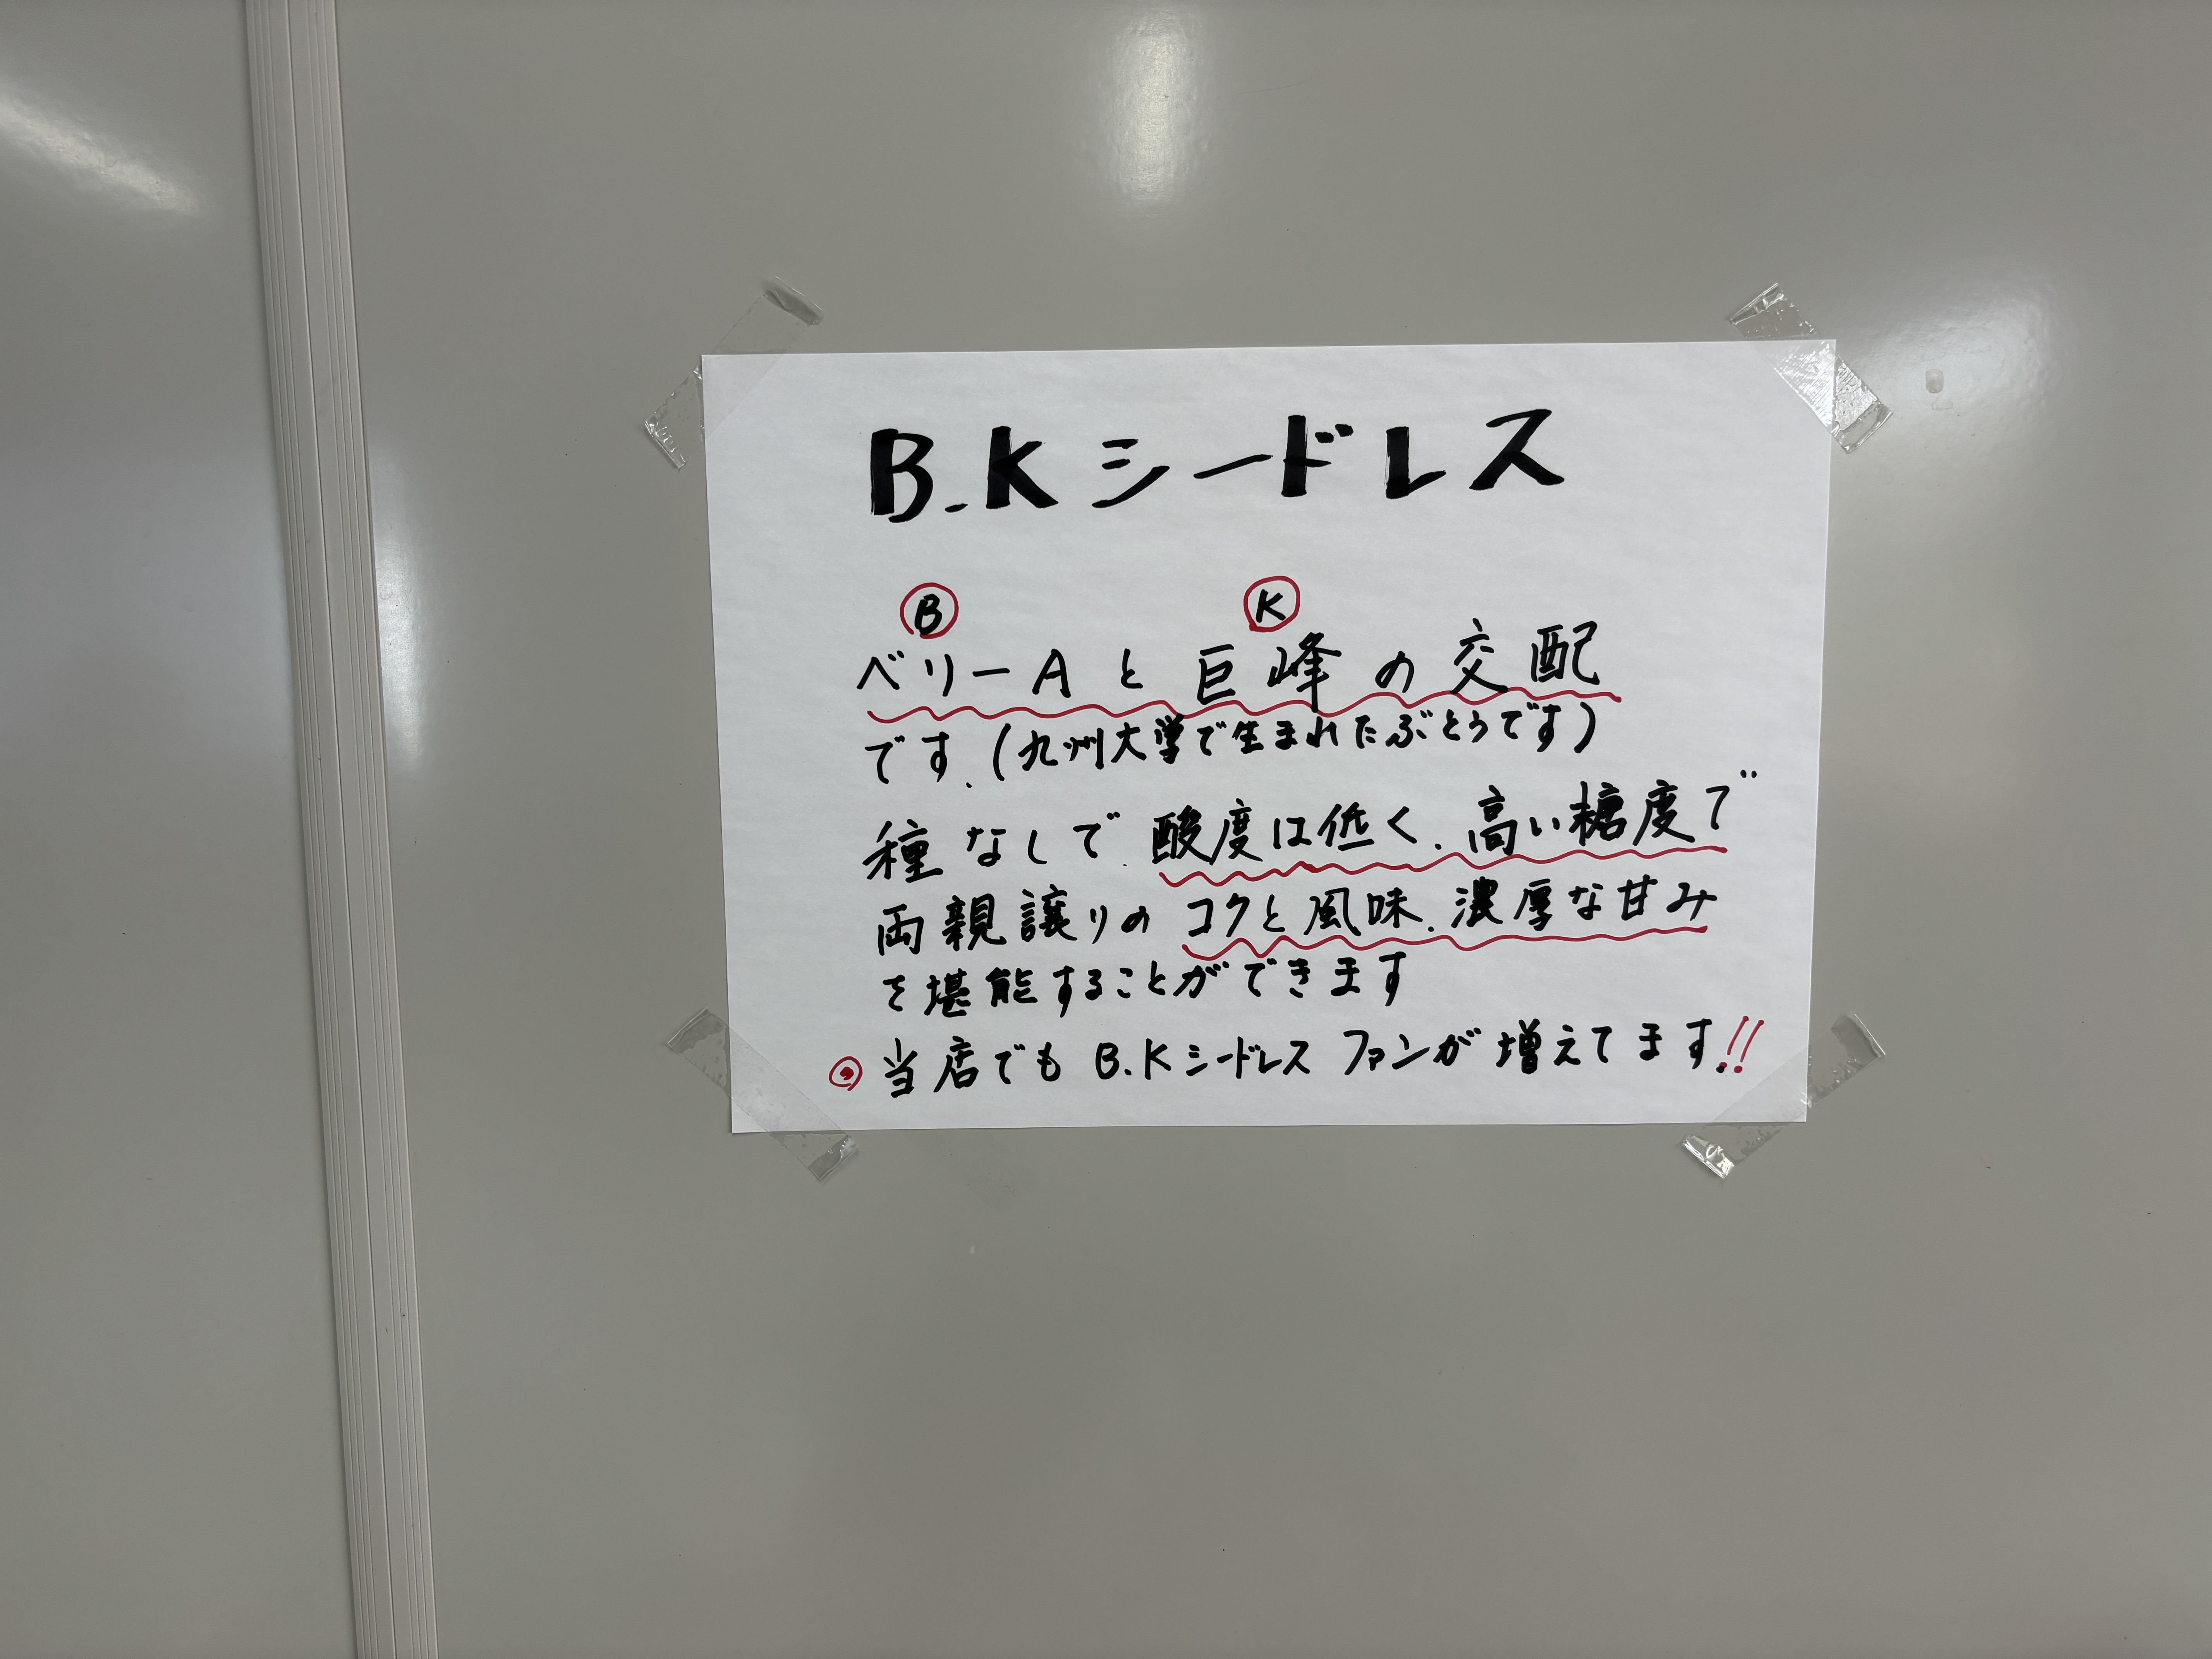 B.Kシードレス
Ⓑ Ⓚ
ベリーAと巨峰の交配
です.(九州大学で生まれたぶどうです)
種なしで.酸度は低く.高い糖度で
両親譲りのコクと風味.濃厚な甘み
を堪能することができます
◉当店でもB.Kシードレスファンが増えてます!!